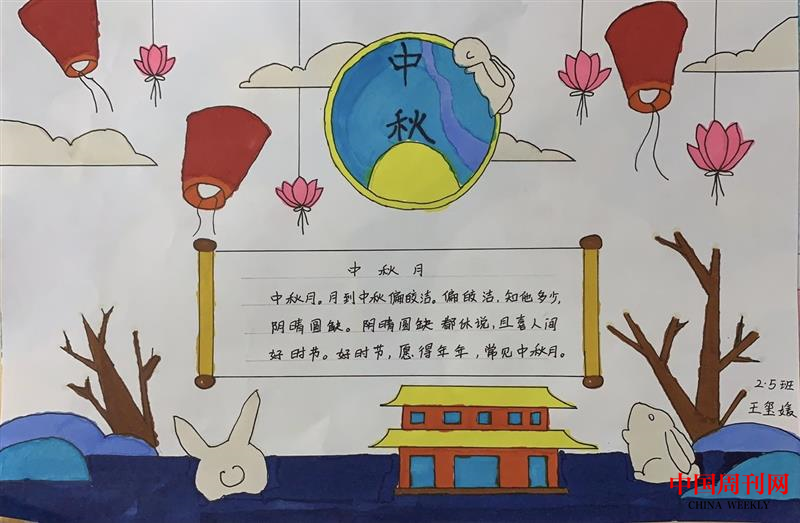 中
秋
中秋月
中秋月。月到中秋偏皎洁。偏皎洁，知他多少，
阴晴圆缺。阴晴圆缺都休说，且喜人间
好时节。好时节，愿得年年，常见中秋月。
2·5班
王玺媛
中国周刊网
CHINA WEEKLY